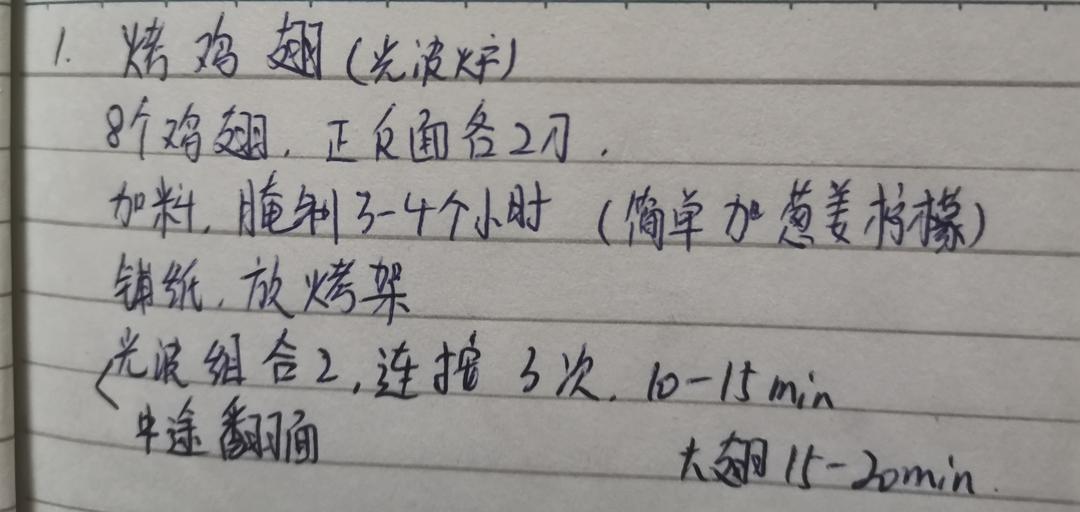 1. 烤鸡翅(光波炉)
8个鸡翅, 正反面各2刀.
加料, 腌制3-4个小时 (简单加葱姜柠檬)
铺纸, 放烤架
光波组合2, 连按3次. 10-15min
中途翻面 大翅15-20min.